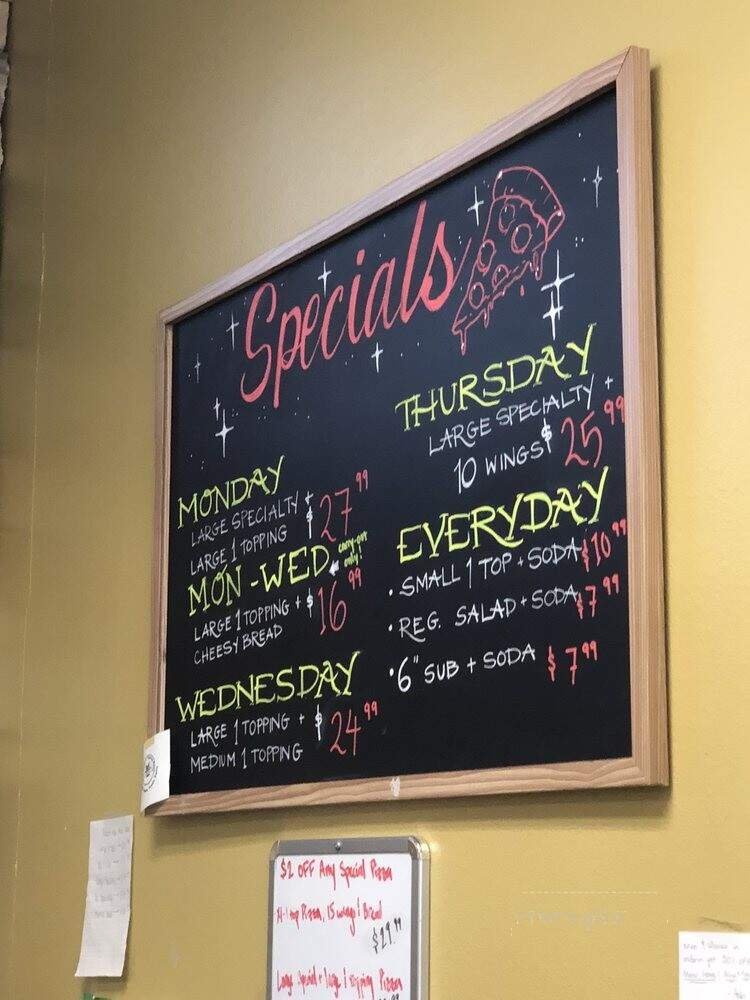 Specials
MONDAY
LARGE SPECIALTY +
LARGE 1 TOPPING
$27.99
MON-WED. carry-out only!
LARGE 1 TOPPING +
CHEESY BREAD
$16.99
WEDNESDAY
LARGE 1 TOPPING +
MEDIUM 1 TOPPING
$24.99
THURSDAY
LARGE SPECIALTY +
10 WINGS $25.99
EVERYDAY
• SMALL 1 TOP + SODA $10.99
• REG. SALAD + SODA $7.99
• 6" SUB + SODA $7.99
$2 OFF Any Special Pizza
Pizza, 15 wings! Bread